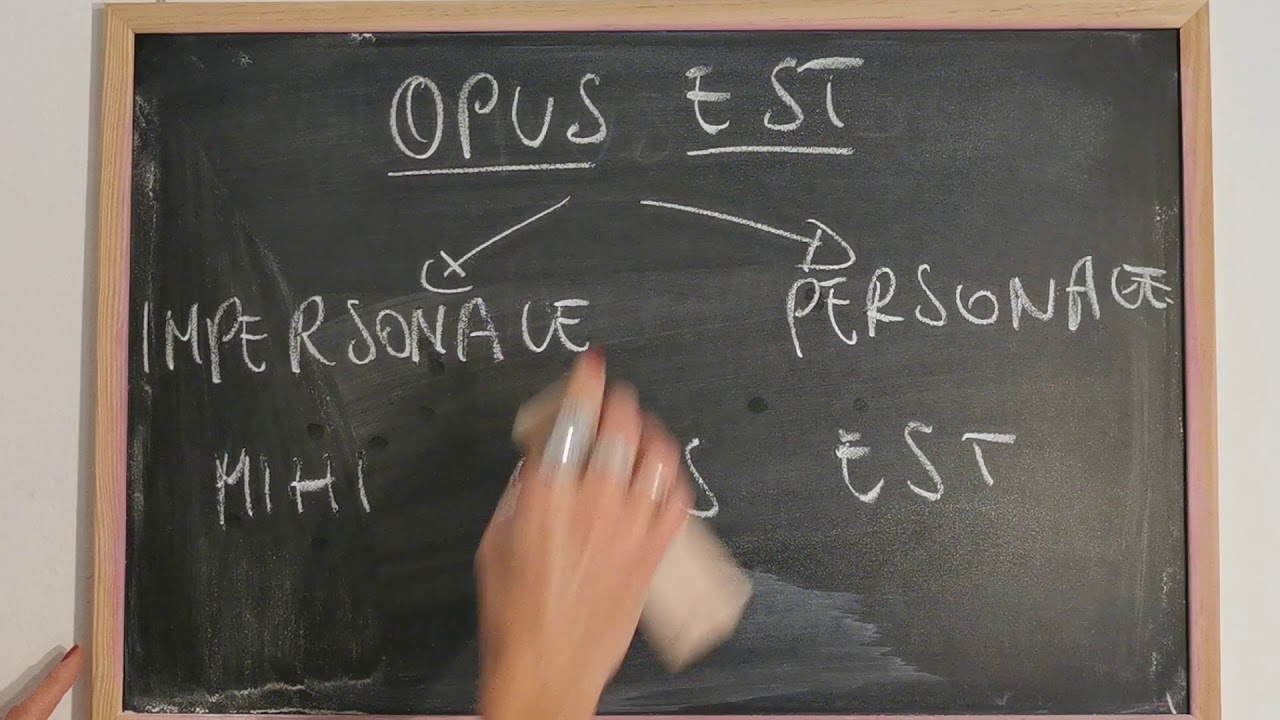 OPUS EST
IMPERSONALE PERSONALE
MIHI EST